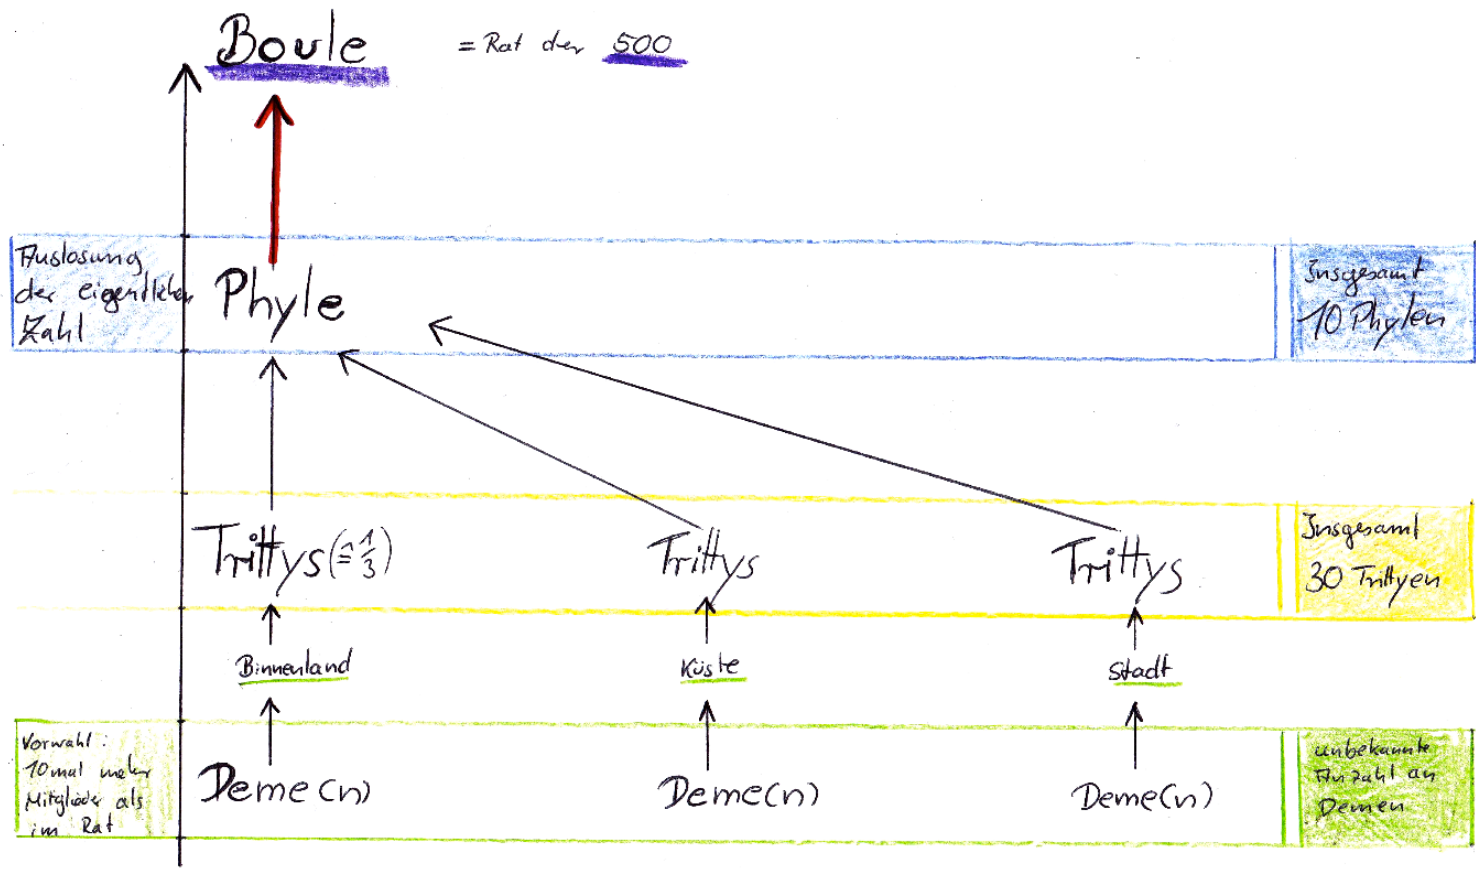 Boule = Rat der 500
Auslosung
der eigentlichen
Zahl
Phyle
Insgesamt
10 Phylen
Trittys (≙ 1/3)
Trittys
Trittys
Insgesamt
30 Trittyen
Binnenland
Küste
Stadt
Vorwahl:
10mal mehr
Mitglieder als
im Rat
Deme(n)
Deme(n)
Deme(n)
unbekannte
Anzahl an
Demen